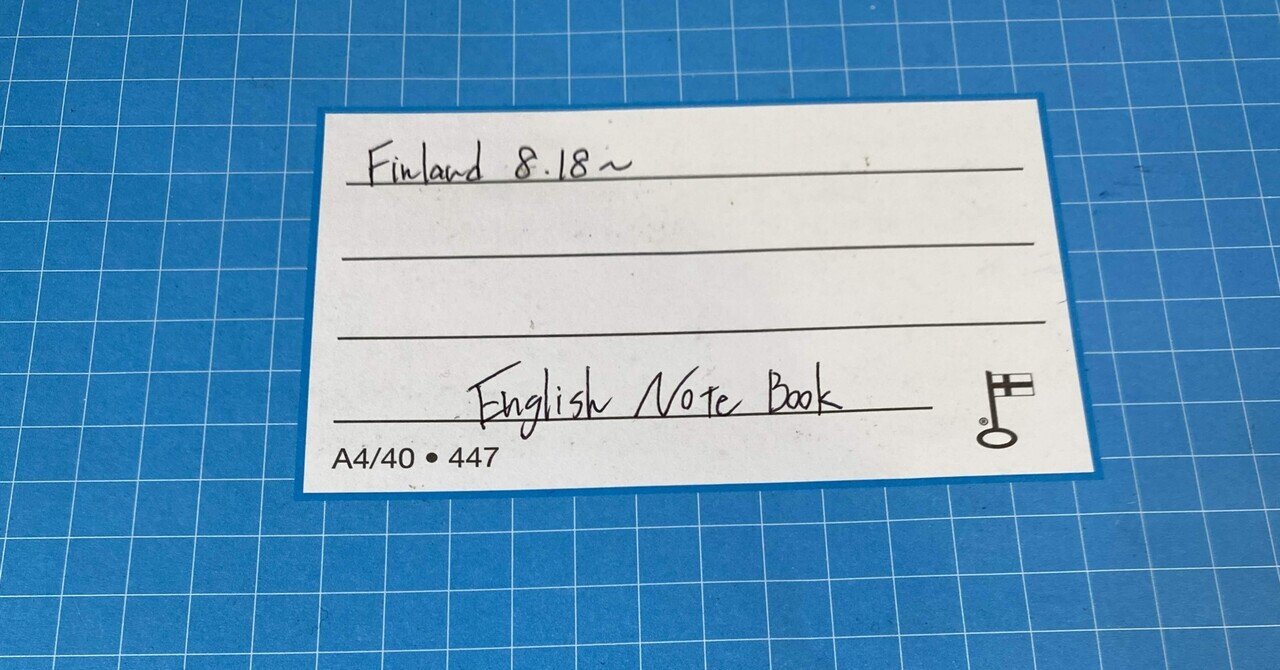 Finland 8.18~
English Note Book
A4/40 • 447
®